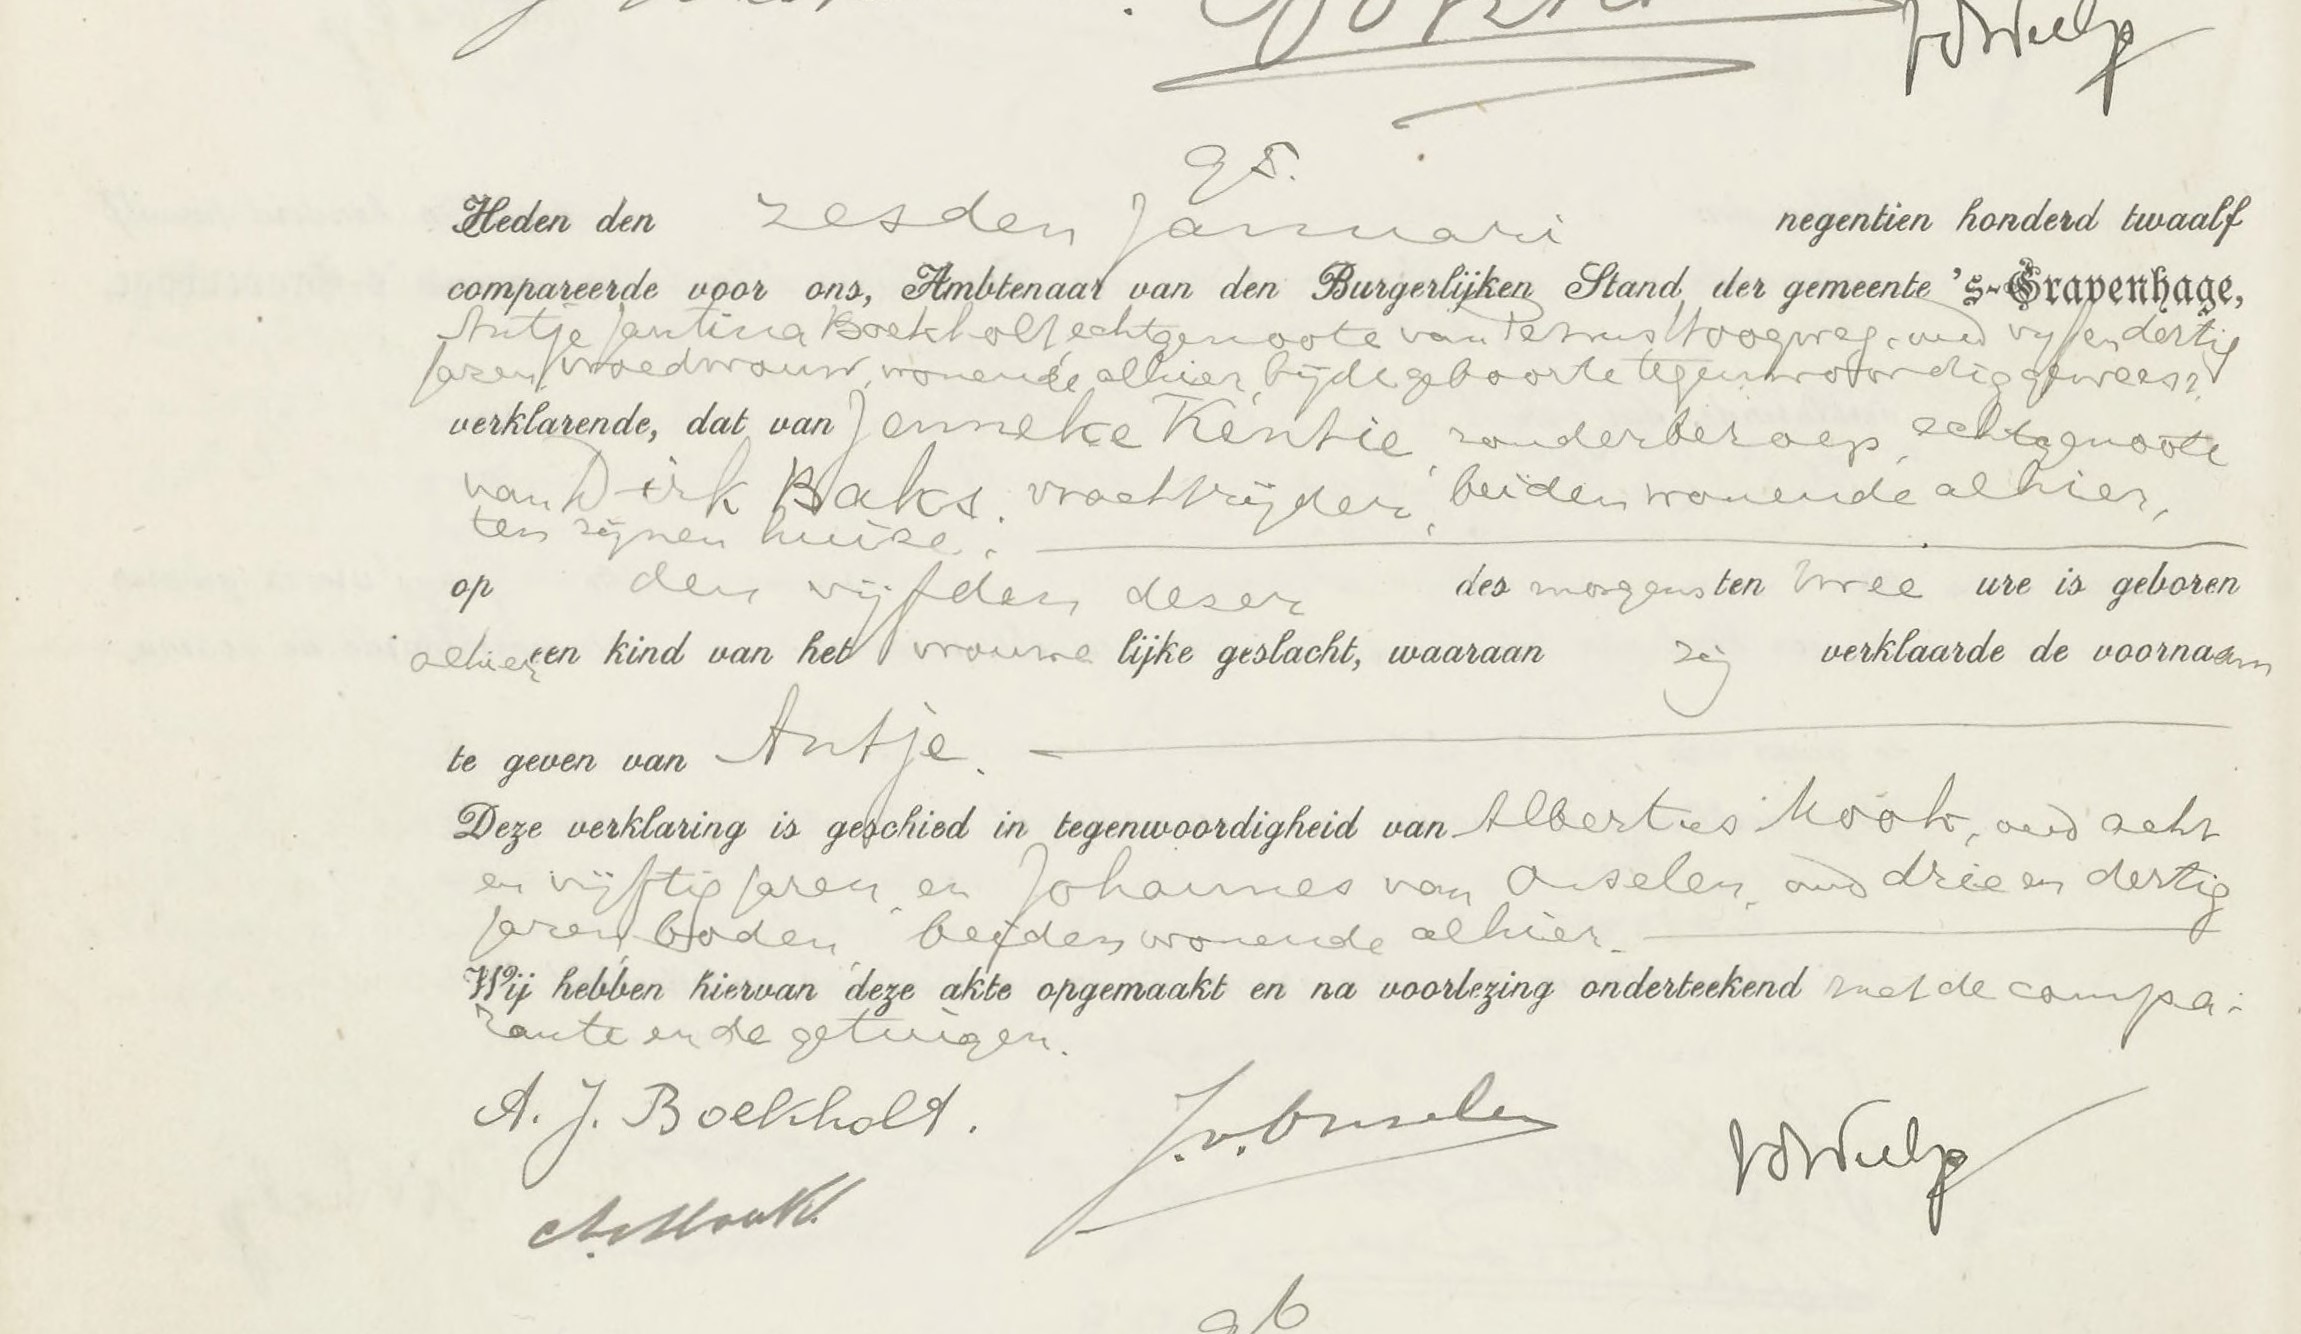 95.
Heden den zesden Januari negentien honderd twaalf
compareerde voor ons, Ambtenaar van den Burgerlijken Stand der gemeente 's-Gravenhage,
Antje Jantina Boekholt, echtgenoote van Petrus Hoogweg, oud vijf en dertig
jaren, vroedvrouw, wonende alhier, bij de geboorte tegenwoordig geweest,
verklarende, dat van Jenneke Kentie, zonder beroep, echtgenoote
van Dirk Baks, vrachtrijder, beiden wonende alhier,
ten zijnen huize,
op den vijfden dezer des morgens ten twee ure is geboren
alhier een kind van het vrouwelijke geslacht, waaraan zij verklaarde de voornaam
te geven van Antje.
Deze verklaring is geschied in tegenwoordigheid van Albertus Mook, oud acht
en vijftig jaren, en Johannes van Onselen, oud drie en dertig
jaren, boden, beiden wonende alhier.
Wij hebben hiervan deze akte opgemaakt en na voorlezing onderteekend met de compa-
rante en de getuigen.
A. J. Boekholt. J. v. Onselen
A. Mook
96